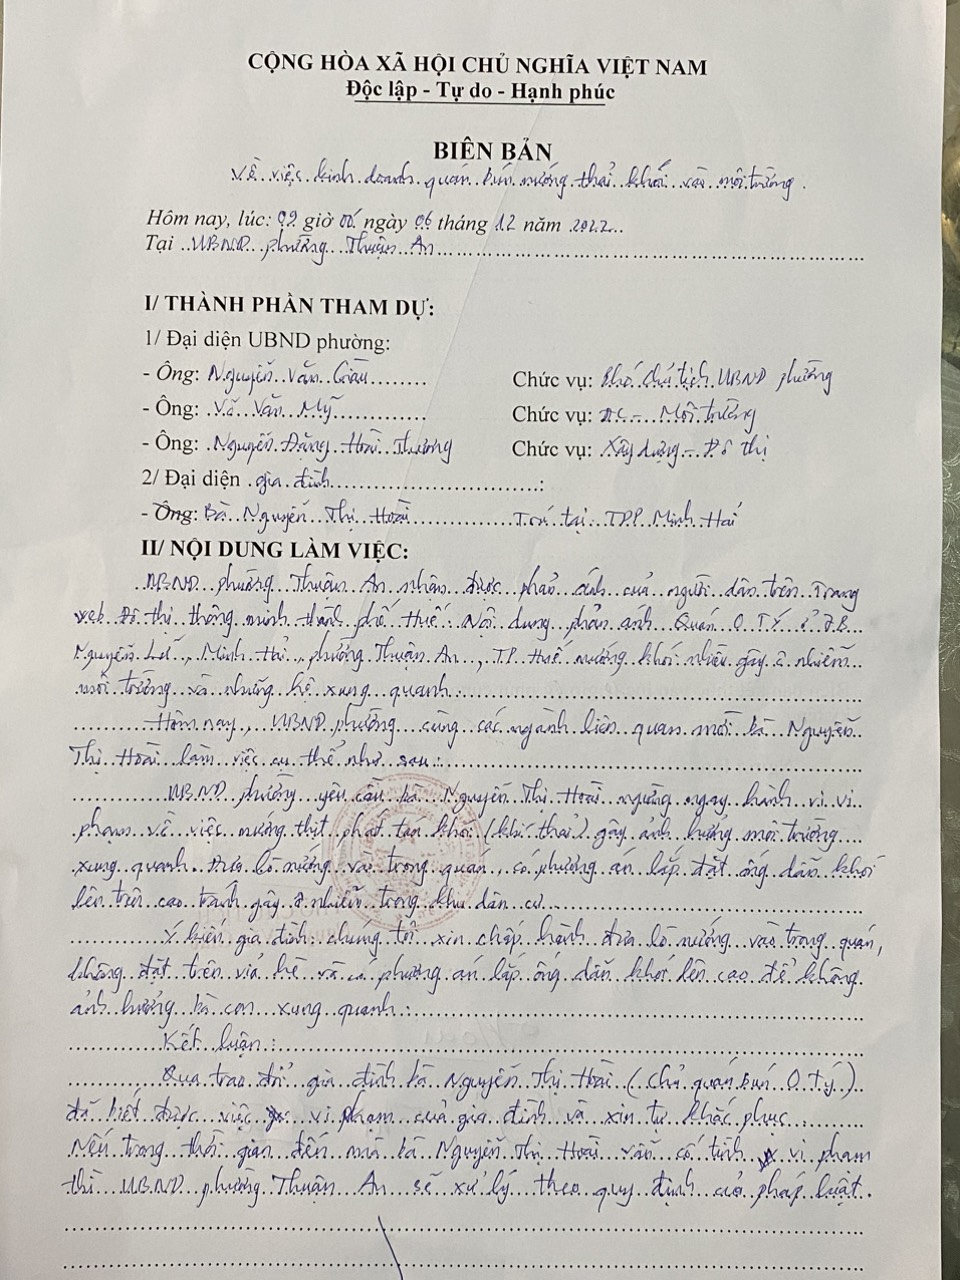 CỘNG HÒA XÃ HỘI CHỦ NGHĨA VIỆT NAM
Độc lập - Tự do - Hạnh phúc
BIÊN BẢN
Về việc kinh doanh quán bún nướng thải khói vào môi trường.
Hôm nay, lúc: 09 giờ 00 ngày 06 tháng 12 năm 2022
Tại UBND phường Thuận An
I/ THÀNH PHẦN THAM DỰ:
1/ Đại diện UBND phường:
- Ông: Nguyễn Văn Giàu Chức vụ: Phó chủ tịch UBND phường
- Ông: Võ Văn Mỹ Chức vụ: ĐC - Môi trường
- Ông: Nguyễn Đặng Hoài Thương Chức vụ: Xây dựng - Đô thị
2/ Đại diện gia đình:
- Ông: Bà Nguyễn Thị Hoài Trú tại TDP Minh Hải
II/ NỘI DUNG LÀM VIỆC:
UBND phường Thuận An nhận được phản ánh của người dân trên Trang
web Đô thị thông minh thành phố Huế: Nội dung phản ánh Quán O Tý ở
Nguyễn Lữ, Minh Hải, phường Thuận An, TP Huế nướng khói nhiều gây ô nhiễm
môi trường và những hộ xung quanh.
Hôm nay, UBND phường cùng các ngành liên quan mời bà Nguyễn
Thị Hoài làm việc cụ thể như sau:
UBND phường yêu cầu bà Nguyễn Thị Hoài ngừng ngay hành vi vi
phạm về việc nướng thịt phát tán khói (khí thải) gây ảnh hưởng môi trường
xung quanh. Đưa lò nướng vào trong quán, có phương án lắp đặt ống dẫn khói
lên trên cao tránh gây ô nhiễm trong khu dân cư.
Ý kiến gia đình: chúng tôi xin chấp hành đưa lò nướng vào trong quán,
không đặt trên vỉa hè và có phương án lắp ống dẫn khói lên cao để không
ảnh hưởng bà con xung quanh.
Kết luận:
Qua trao đổi gia đình bà Nguyễn Thị Hoài (chủ quán bún O Tý)
đã biết được việc vi phạm của gia đình và xin tự khắc phục.
Nếu trong thời gian đến mà bà Nguyễn Thị Hoài vẫn cố tình vi phạm
thì UBND phường Thuận An sẽ xử lý theo quy định của pháp luật.